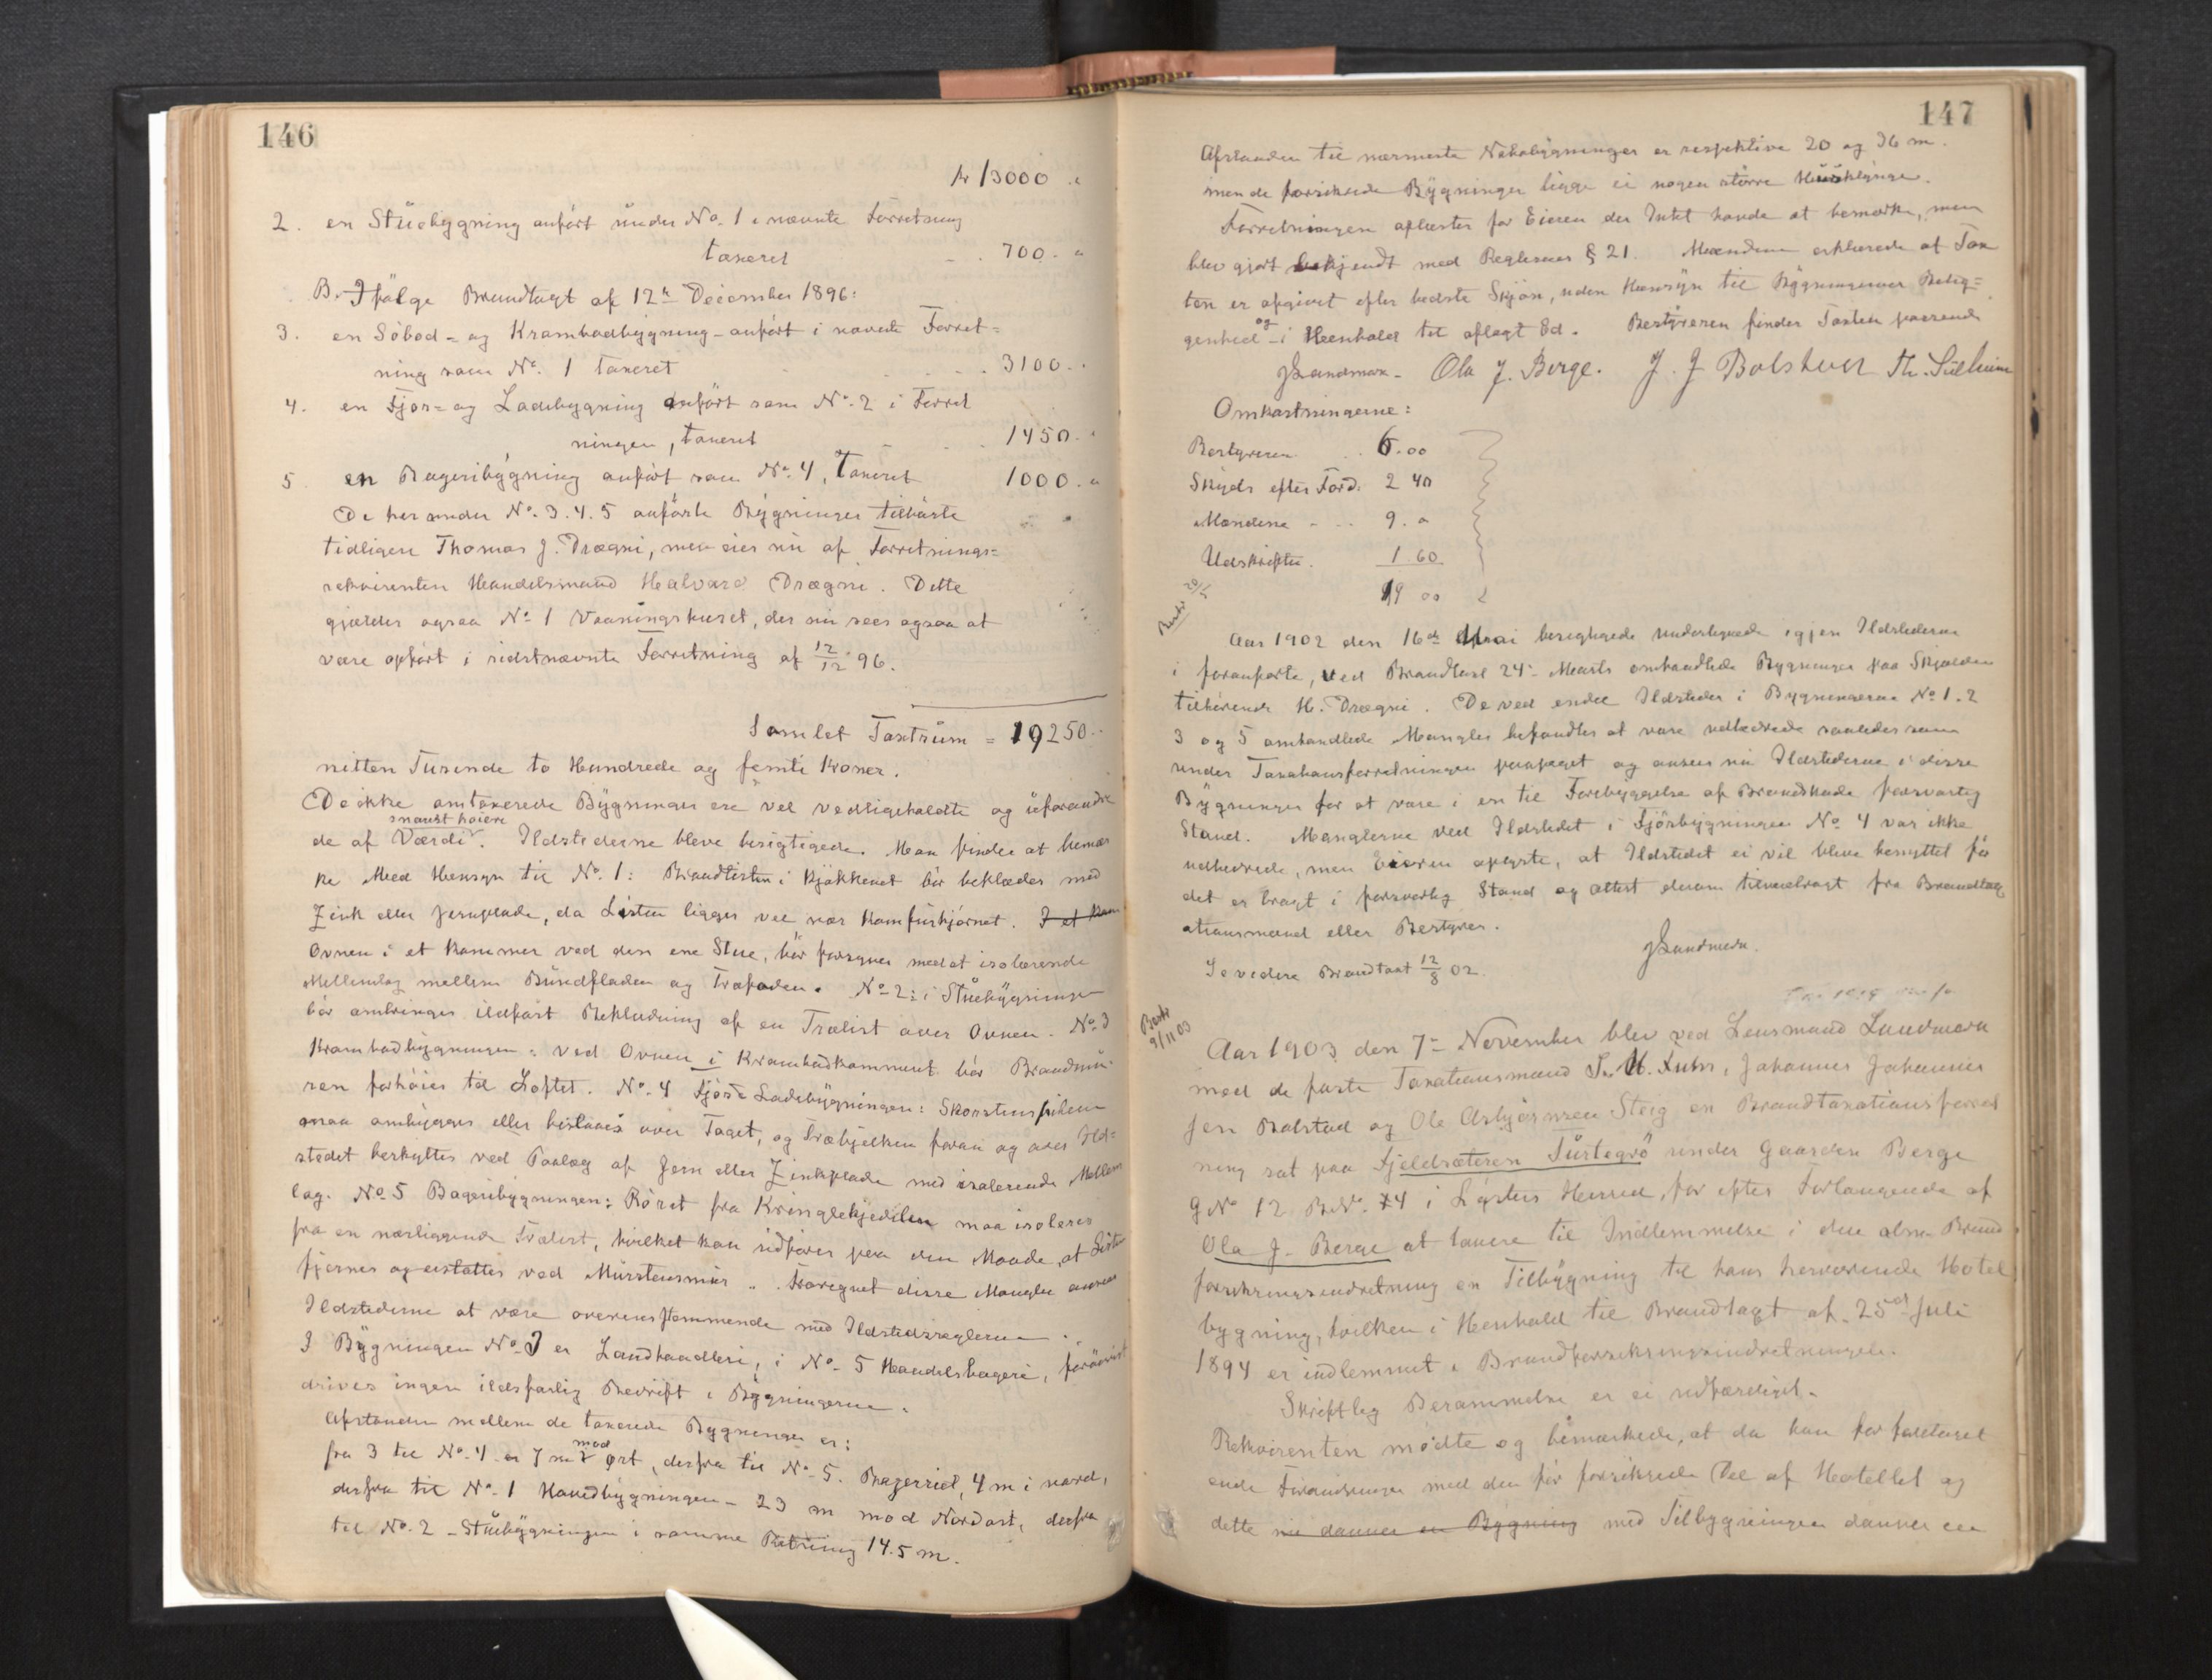 146
kr 13000 "
2. en Stüebygning anført under No. 1 i nævnte Forretning
taxeret 700. "
B. Ifølge Brandtagt af 12te December 1896:
3. en Søbod- og Krambodbygning - anført i nævnte Forret=
ning som No. 1 taxeret 3100. "
4. en Fjøs- og Ladebygning anført som No. 2 i Forret
ningen, taxeret 1450. "
5. en Bageribygning anført som No. 4, Taxeret 1000. "
De her under No. 3. 4. 5 anførte Bygninger tilhørte
tidligere Thomas J. Drægni, men eies nu af Forretnings=
rekvirenten Handelsmand Halvard Drægni. Dette
gjælder ogsaa No 1 Vaaningshuset, der nu sees ogsaa at
være opført i sidstnævnte Forretning af 12/12 96.
Samlet Taxtsum = 19250..
nitten Tusende to Hundrede og femti Kroner.
De ikke omtaxerede Bygninger ere vel vedligeholdte og uforandre
snarest høiere
de af Værdi. Ildstederne bleve besigtigede. Man finder at bemær
ke Med Hensyn til No. 1: Brandlisten i Kjøkkenet bør beklædes med
Zink eller Jernplade, da Listen ligger vel nær Komfurhjørnet. I et Kam
Ovnen i et Kammer ved den ene Stue, bør forsynes med et isolerende
Mellemlag mellem Bundfladen og Træfoden. No 2: i Stuebygningen
bør anbringes ildfast Beklædning af en Trælist over Ovnen. No. 3
Krambodbygningen: ved Ovnen i Krambodkammeret bør Brandmu
ren forhøies til Loftet. No. 4 Fjøs- Ladebygningen: Skorstenspiben
maa ombygges eller over Taget, og Træbjelken foran og over Ild=
stedet beskyttes ved Paalæg af Jern eller Zinkplade med isolerende Mellem
lag. No 5 Bageribygningen: Røret fra Kringlekjedelen maa isoleres
fra en nærliggende Trælist, hvilket kan udføres paa den Maade, at Listen
fjernes og erstattes ved Murstensmur. Fraregnet disse Mangler ansees
Ildstederne at være overensstemmende med Ildstedsreglerne.
I Bygningen No. 3 er Landhandleri, i No. 5 Handelsbageri, forøvrigt
drives ingen ildsfarlig Bedrift i Bygningerne.
Afstanden mellem de taxerede Bygninger er:
fra 3 til No. 4 er 7 m mod Øst, derfra til No. 5. Bageriet, 4 m i nord,
derfra til No. 1 Hovedbygningen - 23 m mod Nordost, derfra
til No. 2 - Stuebygningen i samme Retning 14.5 m.
147
Afstanden til nærmeste Nabobygninger er respektive 20 og 36 m.
men de forsikrede Bygninger ligge ei nogen større Husklynge.
Forretningen oplæstes for Eieren der Intet havde at bemærke, men
blev gjort bekjendt med Reglernes § 21. Mændene erklærede at Tax
ten er afgivet efter bedste Skjøn, uden Hensyn til Bygningernes Belig=
genhed og i Henhold til aflagt Ed. Bestyreren finder Taxten passende
JLandmark - Ola J. Berge. J. J Bolstad Th. Sulheim
Omkostningerne:
Bestyreren 6.00
Skyds efter Ford. 2 40
Mændene 9. "
Udskriften. 1 60
19 00
20/5
Aar 1902 den 16de Mai besigtigede undertegnede igjen Ildstederne
i foranførte, ved Brandtaxt 24- Marts omhandlede Bygninger paa Skjolden
tilhørende H. Drægni. De ved endel Ildsteder i Bygningerne No 1. 2
3 og 5 omhandlede Mangler befandtes at være udbedrede saaledes som
under Taxationsforretningen paapeget og ansees nu Ildstederne i disse
Bygninger for at være i en til Forebyggelse af Brandskade forsvarlig
Stand. Manglerne ved Ildstedet i Fjøsbygningen No 4 var ikke
udbedrede, men Eieren oplyste, at Ildstedet ei vil blive benyttet før
det er bragt i forsvarlig Stand og attest derom tilveiebragt fra Brandtax
ationsmænd eller Bestyrer.
JLandmark.
Se videre Brandtaxt 12/8 02.
9/11 03
Aar 1903 den 7- November blev ved Lensmand Landmark
med de faste Taxationsmænd Fuhr, Johannes Johannes
sen Bolstad og Ole Asbjørnsen Steig en Brandtaxationsforret
ning sat paa Fjeldsæteren Turtegrø under Gaarden Berge
GNo 12 BNo. 4 i Lysters Herred, for efter Forlangende af
Ola J. Berge at taxere til Indlemmelse i den alm. Brand
forsikringsindretning en Tilbygning til hans herværende Hotel
bygning, hvilken i Henhold til Brandtagt af 25de Juli
1894 er indlemmet i Brandforsikringsindretningen.
Skriftlig Berammelse er ei udfærdiget.
Rekvirenten mødte og bemærkede, at da han har foretaget
ende Forandringer med den før forsikrede Del af Hotellet og
dette nu danner en Bygning med Tilbygningen danner en